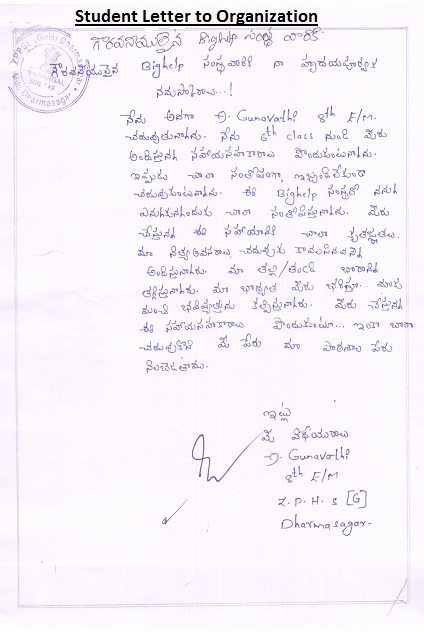 Student Letter to Organization
గౌరవనీయులైన Bighelp సంస్థ వారికి
గౌరవనీయులైన Bighelp సంస్థవారికి నా హృదయపూర్వక
నమస్కారాలు...!
నేను అనగా D. Gunavathi 8th E/M.
చదువుతున్నాను. నేను 6th class నుండి మీరు
అందిస్తున్న సహాయసహకారాలు పొందుకుంటున్నాను.
ఇప్పుడు చాలా సంతోషంగా, ఇబ్బందిలేకుండా
చదువుకుంటున్నాను. ఈ Bighelp సంస్థలో నన్ను
ఎన్నుకున్నందుకు చాలా సంతోషిస్తున్నాను. మీరు
చేస్తున్న ఈ సహాయానికి చాలా కృతజ్ఞతలు.
మా నిత్యావసరాలు, చదువుకు కావలసినవన్ని
అందిస్తున్నారు. మా తల్లి/తండ్రి భారాన్ని
తగ్గిస్తున్నారు. మా బాధ్యత మీరు భరిస్తూ... మాకు
మంచి భవిష్యత్తును కల్పిస్తున్నారు. మీరు చేస్తున్న
ఈ సహాయసహకారాలు పొందుకుంటూ... ఇంకా బాగా
చదువుకొని మీ పేరు మా పాఠశాల పేరు
నిలబెడతాము.
ఇట్లు
మీ విధేయురాలు
D. Gunavathi
8th E/M
Z.P.H.S [G]
Dharmasagar.